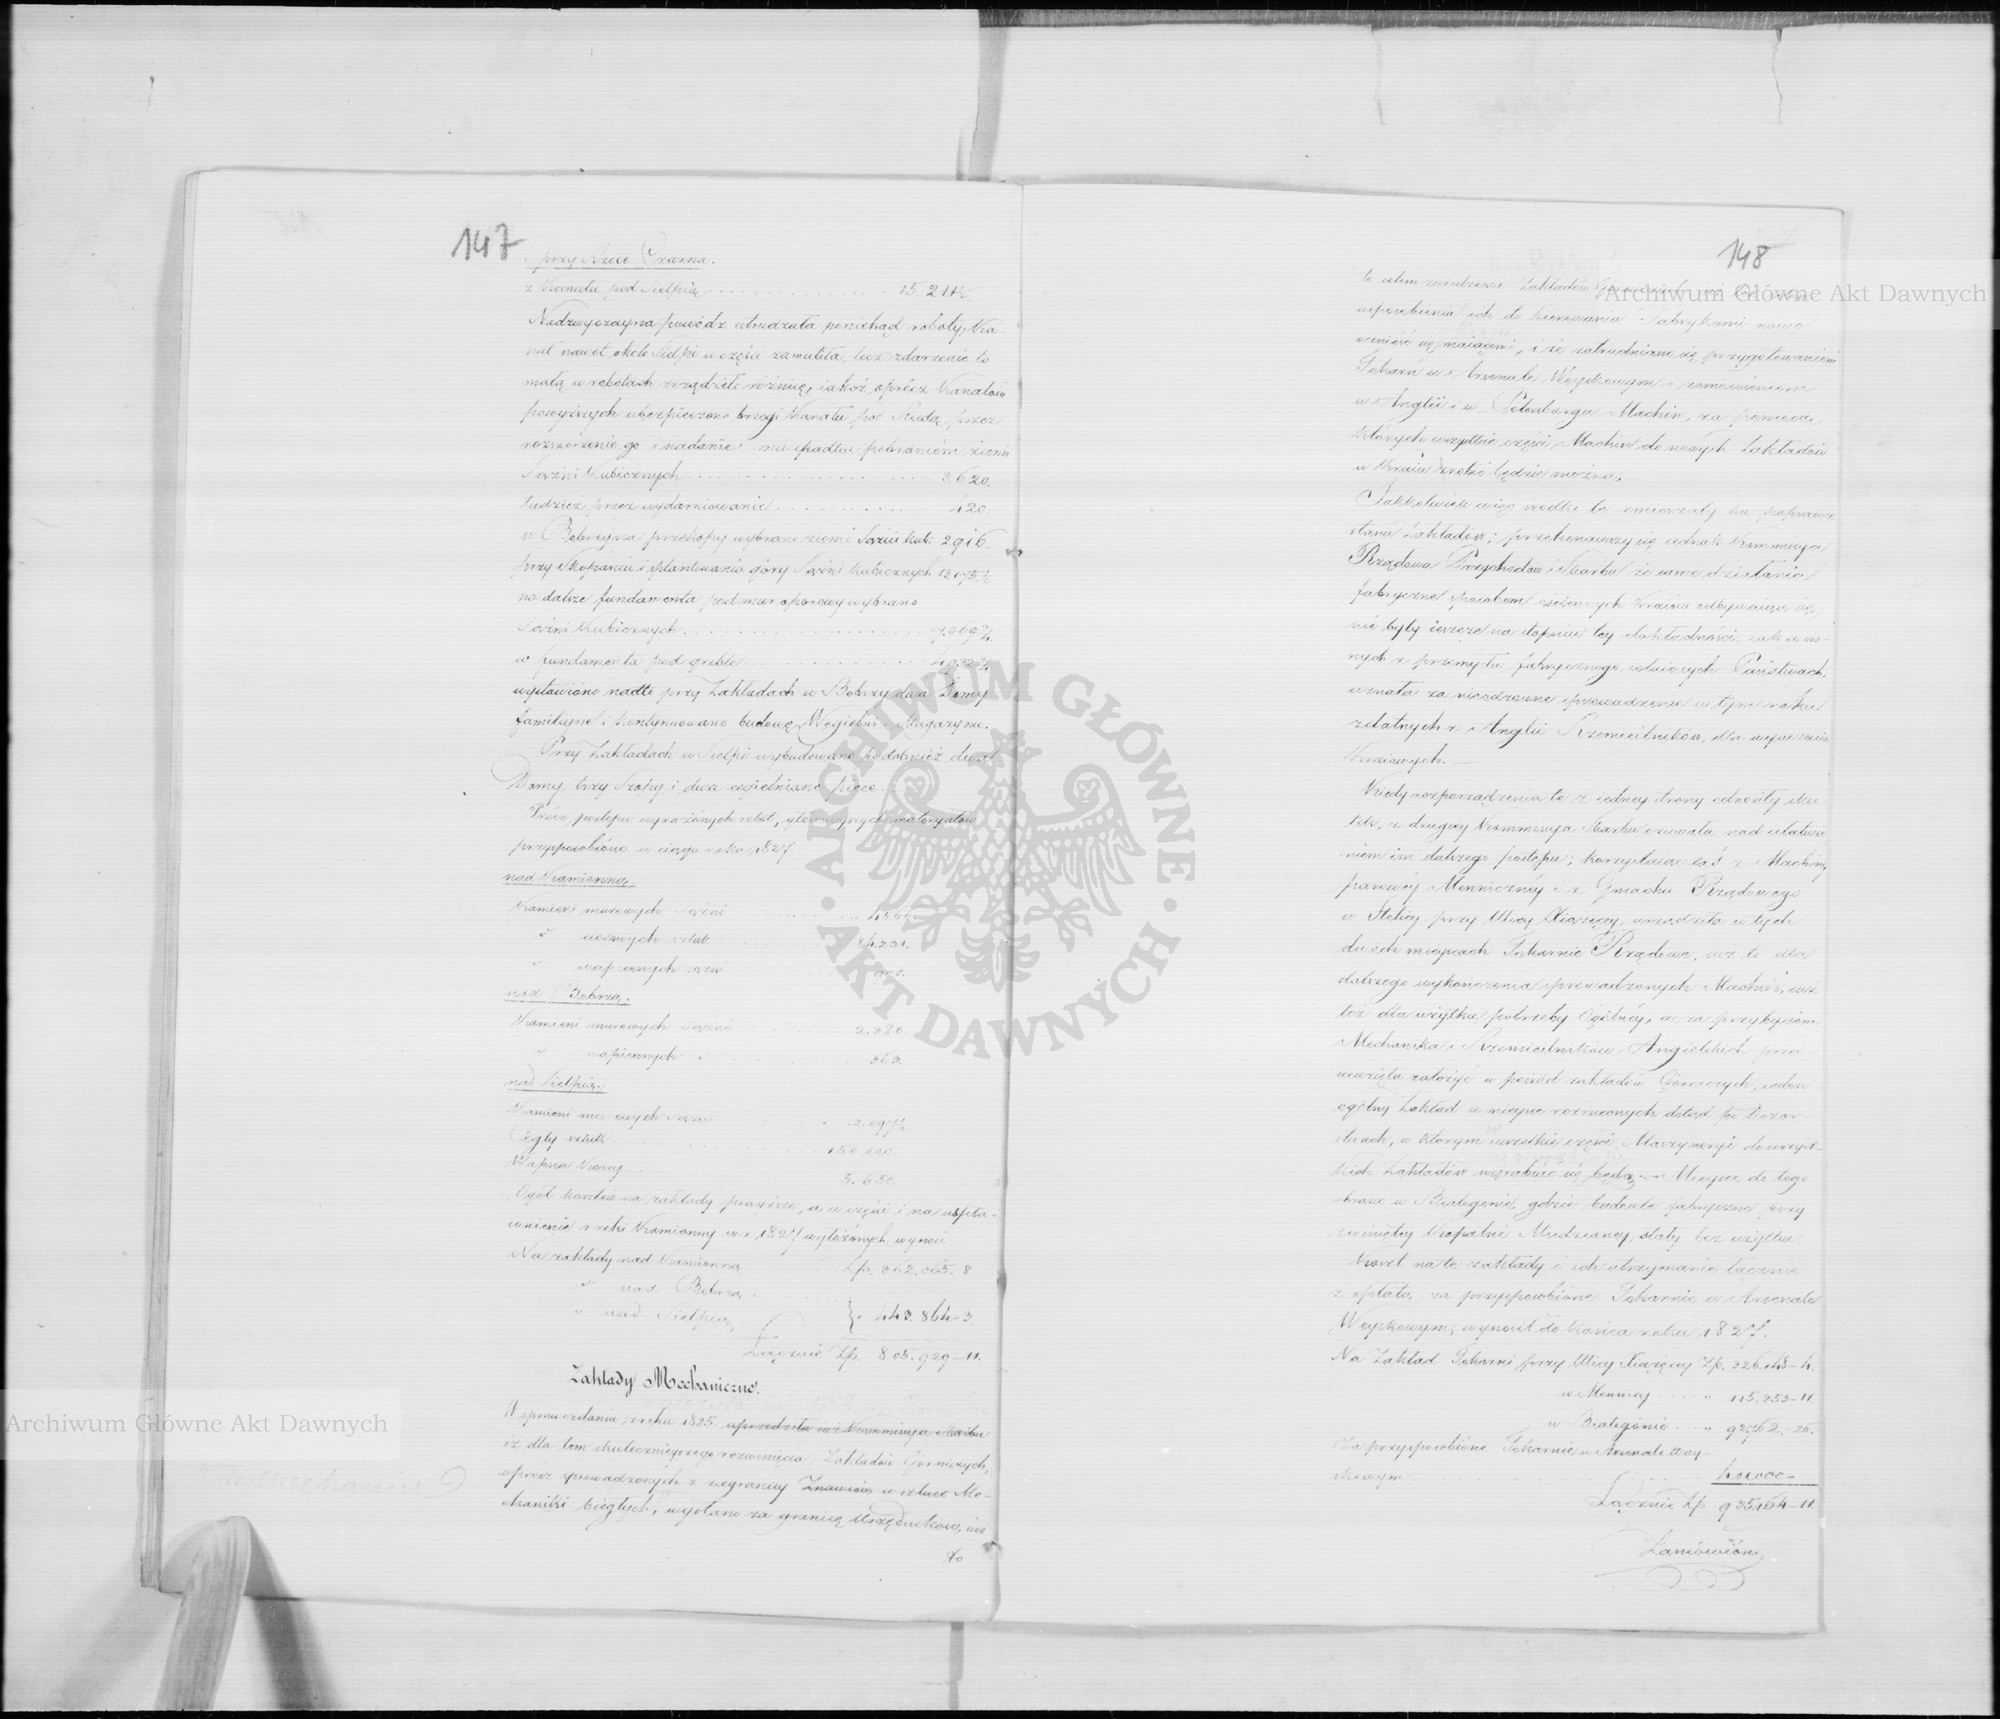 147
przy Rzece Czarna.
z Kanału pod Sielpią 15 211½.
Nadzwyczayna powódź utrudzała poniekąd roboty, Ka-
nał nawet około Sielpi w części zamuliła, lecz zdarzenie to
małą w robotach zrządziło różnicę, iakoż oprócz Kanałów
powyższych ubezpieczono brzegi Kanału pod Rudą przez
rozszerzenie go i nadanie mu spadku pobraniem ziemi
Sążni Kubicznych 3620.
tudzież przez wydarniowanie 420.
w Bobrzyna przekopy wybrano ziemi Sążni kub: 2916.
przy skopaniu i splantowaniu góry Sążni kubicznych
na dalsze fundamenta pod mur oporowy wybrano
Sążni Kubicznych
w fundamenta pod groble
wystawiono nadto przy Zakładach w Bobrzy dwa Domy
familiyne i kontynuowano budowę Węgielni i Magazynu.
Przy Zakładach w Sielpi wybudowano podobnież dwa
Domy, trzy Szopy i dwa cegielniane piece.
Prócz postępu wyrażonych robót, głównieyszych materyałów
przysposobiono w ciągu roku 1827.
nad Kamionną.
Kamieni murowych Sążni
" ciosowych sztuk 84.231.
" wapiennych sążni
nad Bobrzą.
Kamieni murowych Sążni 2.080.
" wapiennych " 363.
nad Sielpią.
Kamieni murowych Sążni
Cegły sztuk 150.000.
Wapna Korcy 3.650.
Ogół kosztów na zakłady powyższe, a w części i na uspła-
wnienie rzeki Kamionny w r. 1827 wyłożonych wynosi
Na zakłady nad Kamionną Złp. 362.065. 8
" nad Bobrzą
" nad Sielpią } " 443.864-3.
Łącznie Złp. 805.929-11.
Zakłady Mechaniczne.
W sprawozdaniu z roku 1825. uprzedziła już Kommissya Skarbu
iż dla tem skutecznieyszego rozwinięcia Zakładów Górniczych,
oprócz sprowadzonych z zagranicy Znawców w sztuce Me-
chaniki biegłych, wysłano za granicę Urzędników, iuż
to
148
to celem zwiedzenia Zakładów Górniczych iuż też
usposobienia ich do kierowania Fabrykami nowo
wznieść się maiącemi, i że zatrudniano się przygotowaniem
Tokarń w Arsenale Woyskowym i zamówieniem
w Anglii i w Petersburgu Machin, za pomocą
których wszystkie części Machin do nowych Zakładów
w Kraiu zrobić będzie można.
Jakkolwiek więc środki te zmierzały ku poprawie
stanu Zakładów; przekonawszy się iednak Kommissya
Rządowa Przychodów i Skarbu że same działania
fabryczne sposobem ościennych Kraiów odbywaiące się,
nie były ieszcze na stopniu tey dokładności iak w in-
nych z przemysłu fabrycznego celuiących Państwach,
uznała za niezbędne sprowadzenie w tym roku
zdatnych z Anglii Rzemieślników, dla wyuczenia
Kraiowych.
Kiedy rozporządzenia te z iedney strony odnosiły sku-
tek, z drugiey Kommissya Skarbu czuwała nad ułatwie
niem im dalszego postępu; korzystaiąc iuż z Machiny
parowéy Menniczéy i z Gmachu Rządowego
w Stolicy przy Ulicy Xiążęcey, urządziła w tych
dwóch mieyscach Tokarnie Rządowe, iuż to dla
dalszego wykończenia sprowadzonych Machin, iuż
też dla użytku potrzeby Ogólnéy, a za przybyciem
Mechanika i Rzemieślników Angielskich przed
sięwzięła założyć w pośród zakładów Górniczych, ieden
ogólny Zakład w mieysce rozrzuconych dotąd po Dozor-
stwach, w którym wszelkie części Maszyneryi do wszyst-
kich Zakładów wyrabiać się będą. — Mieysce do tego
obrano w Białogonie, gdzie budowle fabryczne przy
zwiniętey Kopalni Miedzianey, stały bez użytku.
Koszt na te zakłady i ich utrzymanie łącznie
z opłatą za przysposobione Tokarnie w Arsenale
Woyskowym, wynosił do końca roku 1827.
Na Zakład Tokarni przy Ulicy Xiążęcey Złp. 326.148-4.
w Mennicy " 115.953-11.
w Białogonie " 92.762.-26.
Za przysposobione Tokarnie w Arsenale Woy-
skowym 400000-
Łącznie Złp. 935.164-11.
Zamówion
Archiwum Główne Akt Dawnych
Archiwum Główne Akt Dawnych
ARCHIWUM GŁÓWNE · AKT DAWNYCH ·